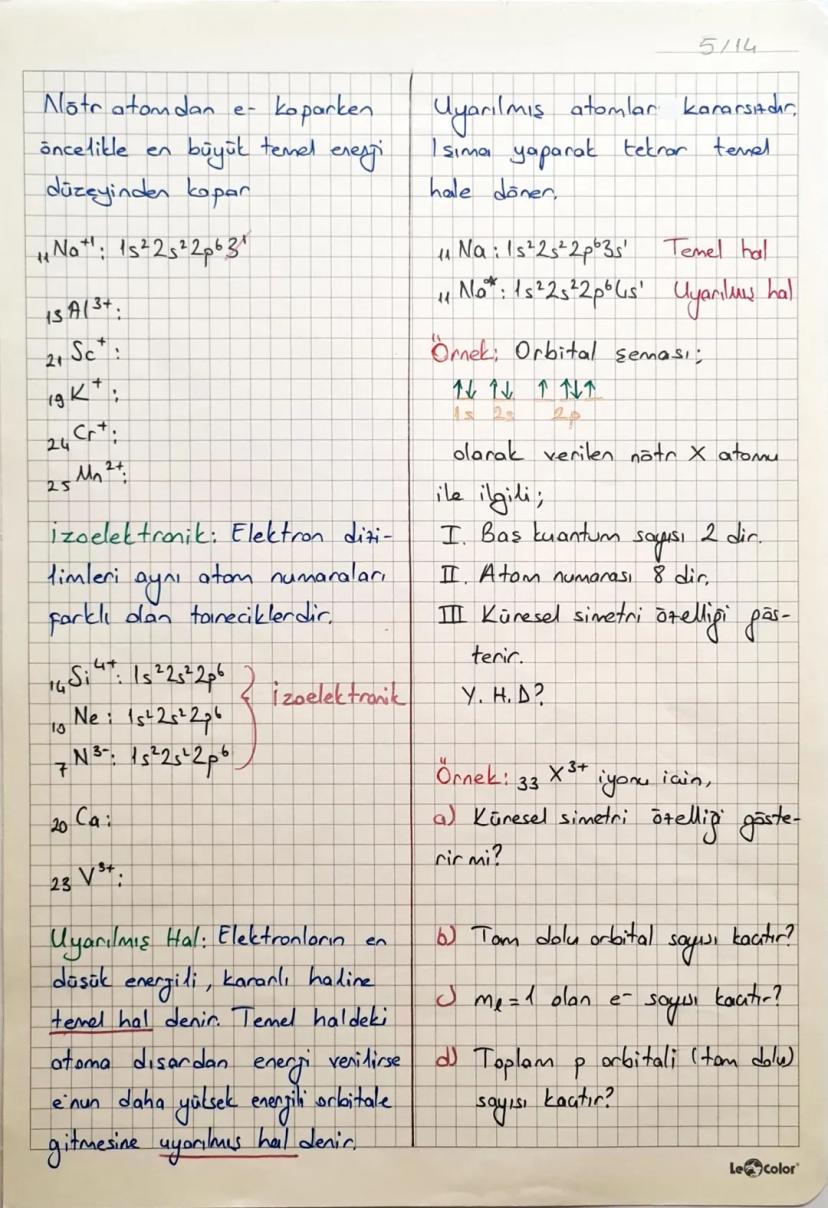 5/14
Nötr atomdan e- koparken
öncelikle en büyük temel enerji
düzeyinden kopar
₁₁Na⁺¹: 1s²2s²2p⁶3¹
₁₃Al³⁺:
₂₁Sc⁺:
₁₉K⁺:
₂₄Cr⁺:
₂₅Mn²⁺:
izoelektronik: Elektron dizi-
limleri aynı atom numaraları
farklı olan taneciklerdir.
₁₄Si⁴⁺: 1s²2s²2p⁶
₁₀Ne: 1s²2s²2p⁶
₇N³⁻: 1s²2s²2p⁶
izoelektronik
₂₀Ca:
₂₃V³⁺:
Uyarılmış Hal: Elektronların en
düşük energili, kararlı haline
temel hal denir. Temel haldeki
atoma dışardan energi verilirse
e⁻nun daha yüksek energili orbitale
gitmesine uyarılmış hal denir.
Uyarılmış atomlar kararsızdır.
Işıma yaparak tekrar temel
hale döner.
₁₁Na: 1s²2s²2p⁶3s¹ Temel hal
₁₁Na*: 1s²2s²2p⁶4s¹ Uyarılmış hal
Örnek; Orbital şeması;
↑↓ ↑↓ ↑ ↑↓↑
1s 2s 2p
olarak verilen nötr X atomu
ile ilgili;
I. Baş kuantum sayısı 2 dir.
II. Atom numarası 8 dir.
III Küresel simetri özelliği gös-
terir.
Y. H. D?
Örnek: ₃₃X³⁺ iyonu için,
a) Küresel simetri özelliği göste-
rir mi?
b) Tam dolu orbital sayısı kaçtır?
c) mℓ=1 olan e- sayısı kaçtır?
d) Toplam p orbitali (tam dolu)
sayısı kaçtır?
LeColor